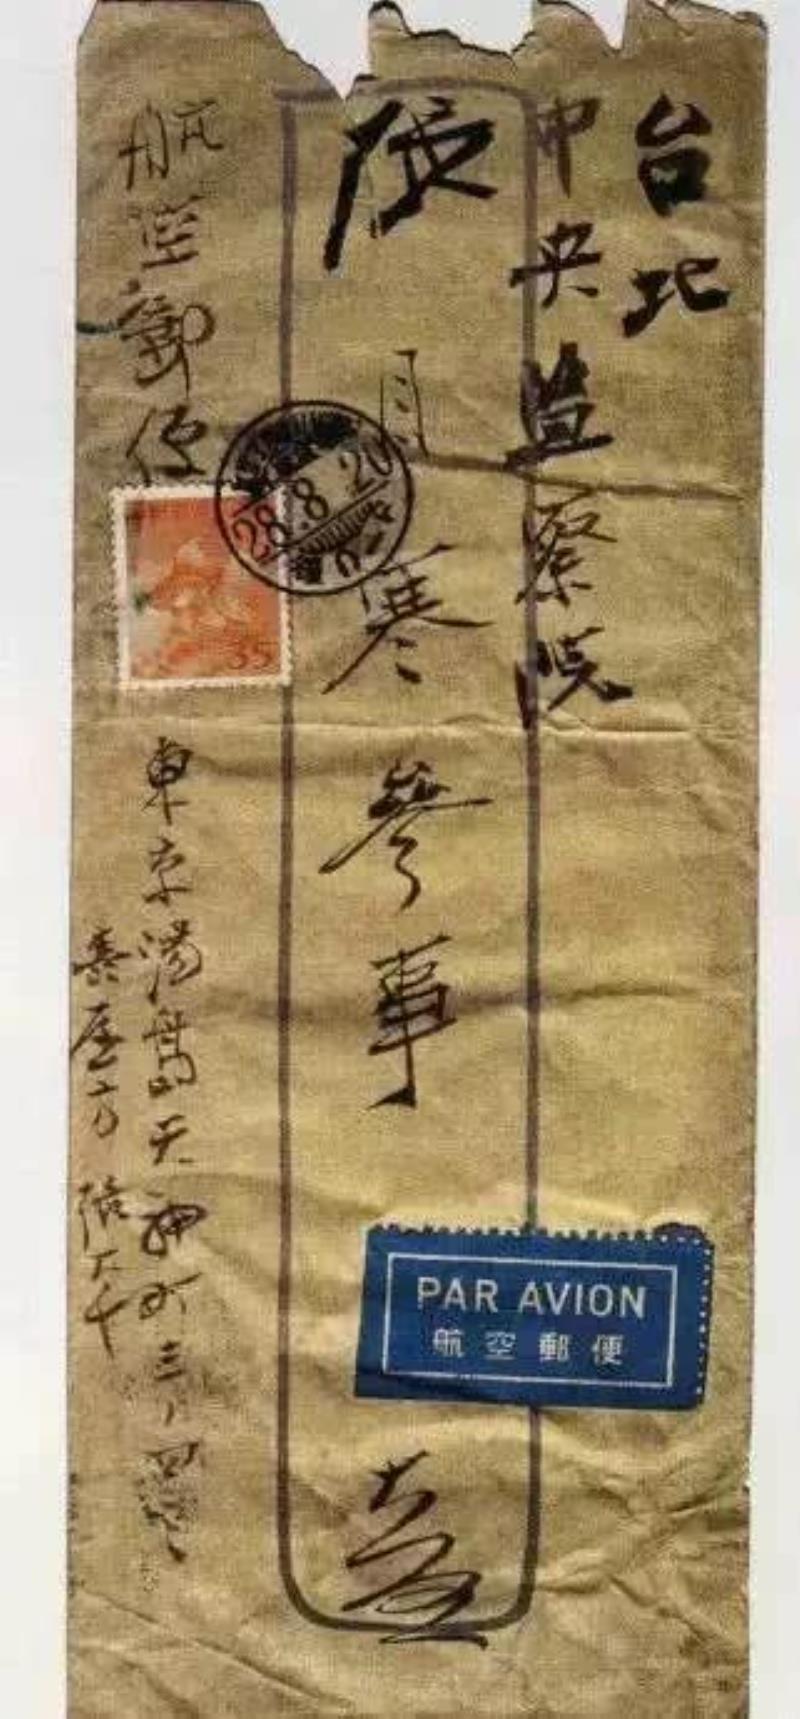 台北
中央監察院
張目寒參事
臺啟
航空郵便
28.8.20
35
東京湯島天神町三ノ四
張大千
PAR AVION
航空郵便